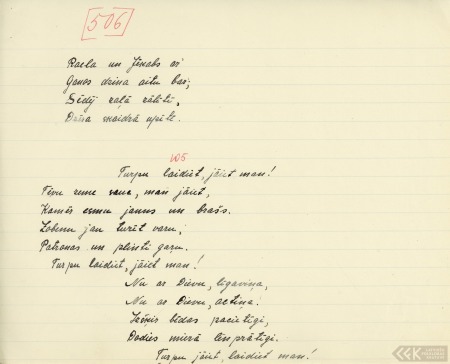 [506]
Raela un Jēkabs ar'
Ganos dzina aitu bar;
Sēdēj zaļā zālītē,
Dzēra skaidrā upītē.
106
Turpu laidiet, jāiet man!
Tēvu zeme sauc, man jāiet,
Kamēr esmu jauns un brašs.
Zobenu jau turēt varu;
Patronas un plinti garu.
Turpu laidiet, jāiet man!
Nu ar Dievu, līgaviņa,
Nu ar Dievu, actiņa.
bēdas pacietīgi,
Dodies mierā lēnprātīgi.
Turpu jāiet, laidiet man!